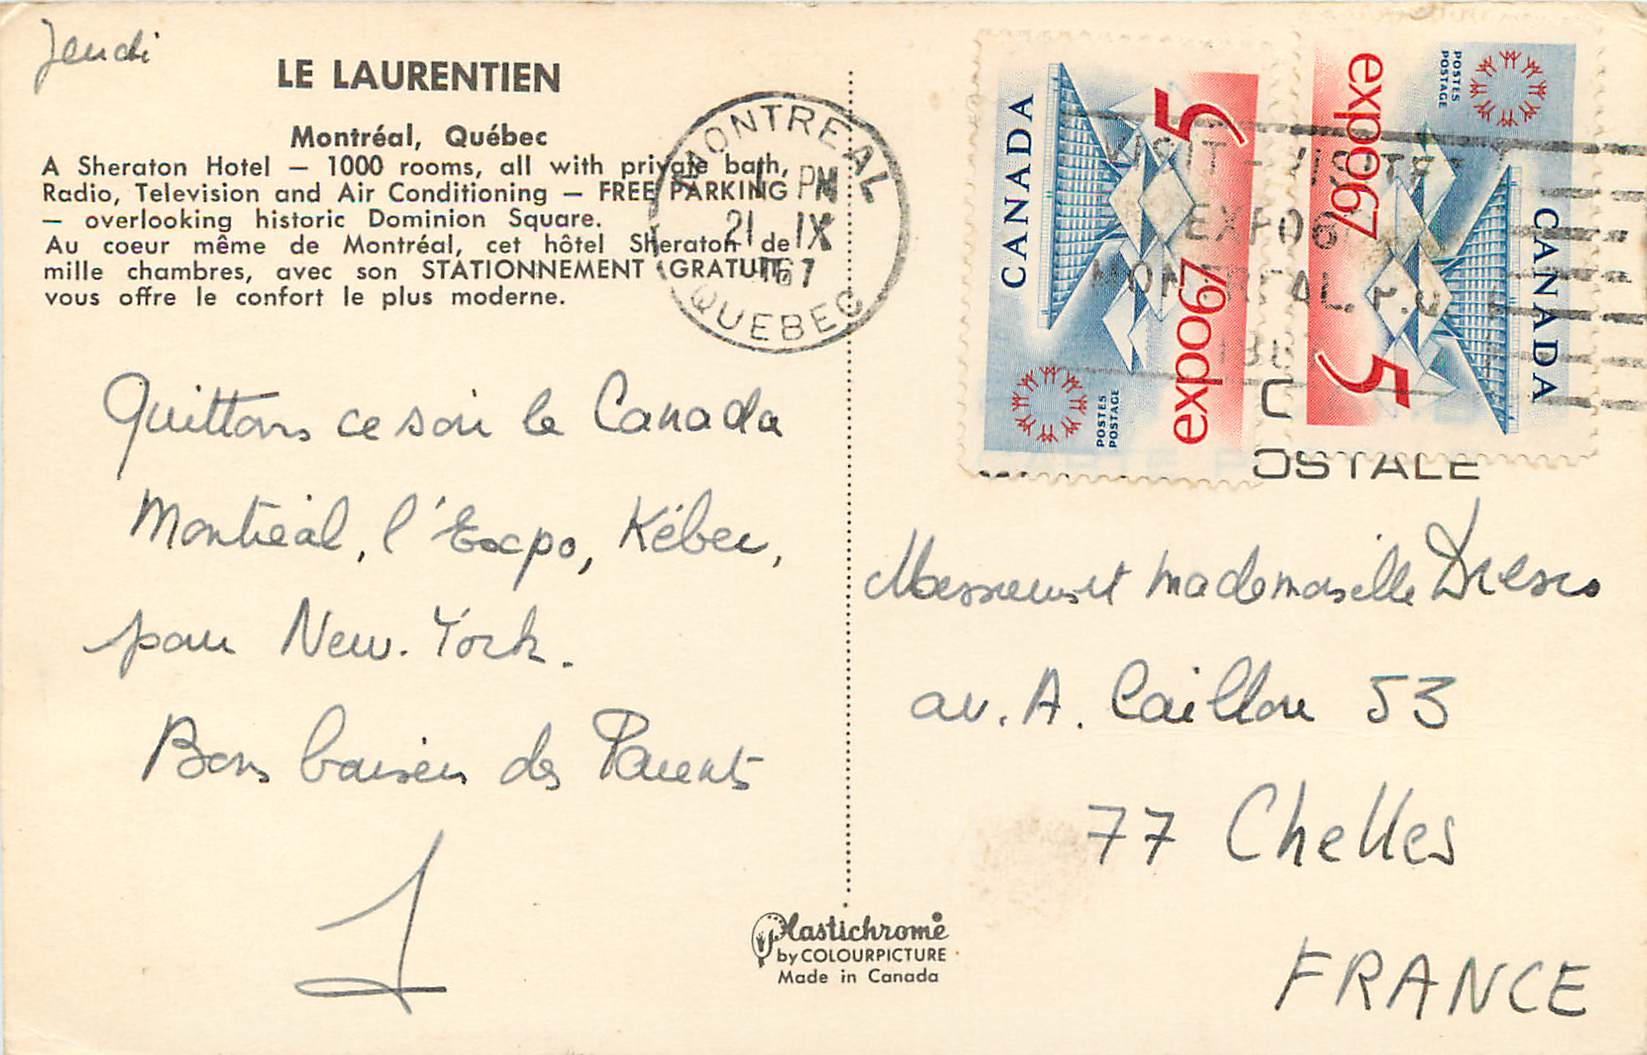 Jeudi
LE LAURENTIEN
Montréal, Québec
A Sheraton Hotel — 1000 rooms, all with private bath,
Radio, Television and Air Conditioning — FREE PARKING
— overlooking historic Dominion Square.
Au coeur même de Montréal, cet hôtel Sheraton de
mille chambres, avec son STATIONNEMENT GRATUIT,
vous offre le confort le plus moderne.
Quittons ce soir le Canada
Montréal, l'Expo, Kébec,
pour New-York.
Bons baisers des Parents
MONTREAL
1 PM
21 IX
67
QUEBEC
CANADA
5
expo67
POSTES
POSTAGE
expo67
5
POSTES
POSTAGE
CANADA
VISIT - VISITEZ
EXPO67
MONTREAL. P.Q.
OSTALE
Messieurs et Mademoiselle
av. A. Caillou 53
77 Chelles
FRANCE
Plastichrome
by COLOURPICTURE
Made in Canada